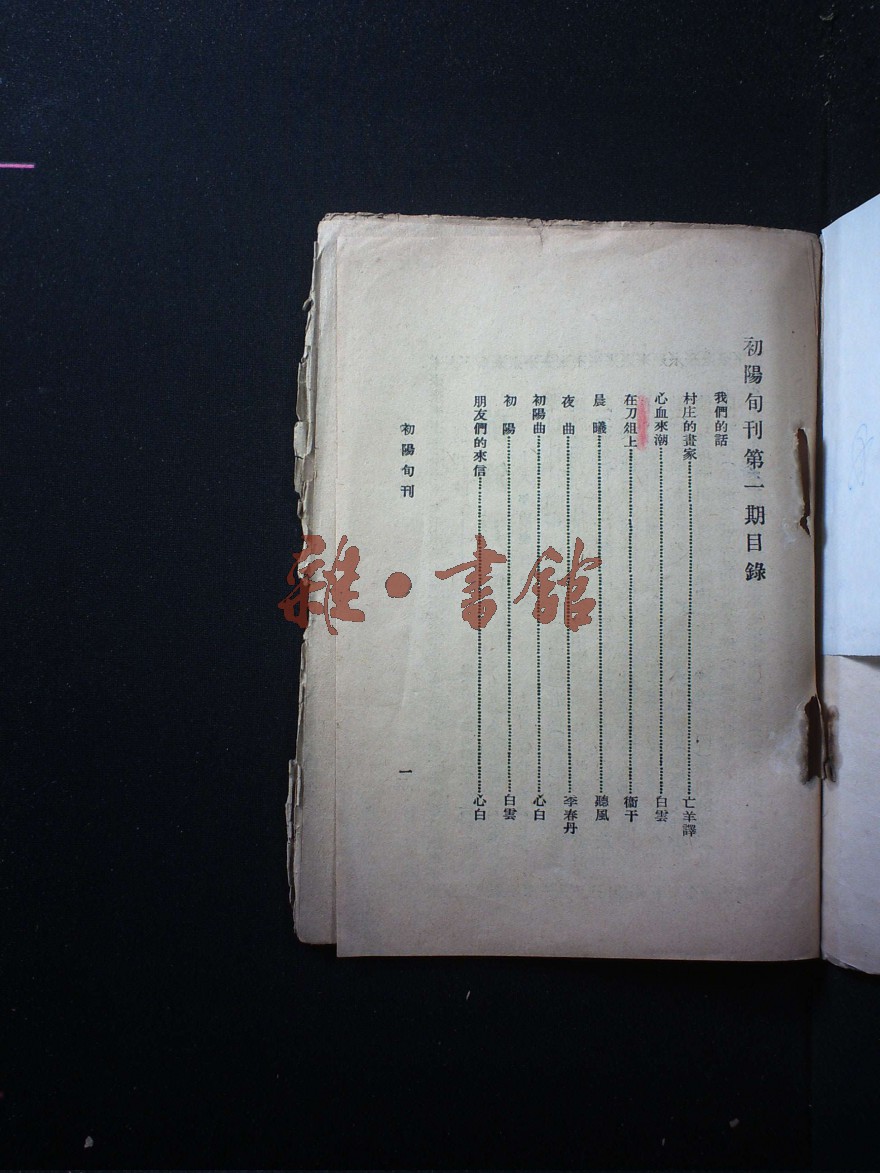 初陽旬刊第二期目錄
我們的話
村庄的畫家……亡羊譯
心血來潮……白雲
在刀俎上……衞干
晨曦……聽風
夜曲……季春丹
初陽曲……心白
初陽……白雲
朋友們的來信……心白
初陽旬刊 一
雜·書館